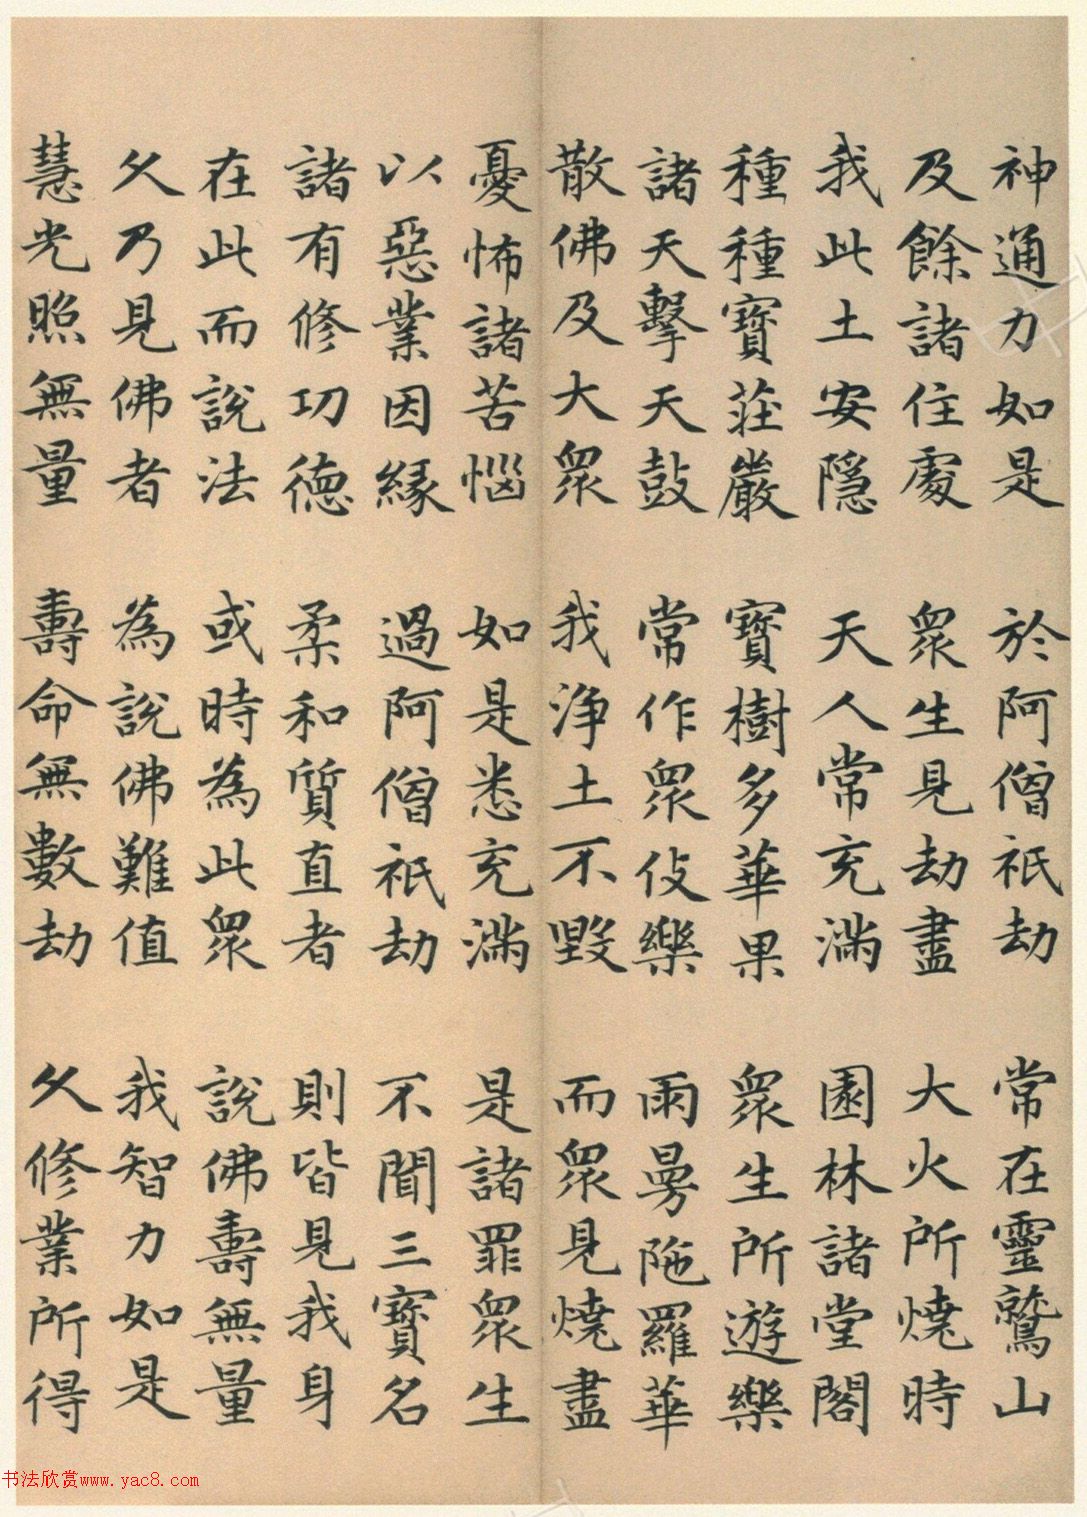 神通力如是 於阿僧祇劫 常在靈鷲山
及餘諸住處 眾生見劫盡 大火所燒時
我此土安隱 天人常充滿 園林諸堂閣
種種寶莊嚴 寶樹多華果 眾生所遊樂
諸天擊天鼓 常作眾伎樂 雨曼陁羅華
散佛及大眾 我淨土不毀 而眾見燒盡
憂怖諸苦惱 如是悉充滿 是諸罪眾生
以惡業因緣 過阿僧祇劫 不聞三寶名
諸有修功德 柔和質直者 則皆見我身
在此而說法 或時為此眾 說佛壽無量
久乃見佛者 為說佛難值 我智力如是
慧光照無量 壽命無數劫 久修業所得
书法欣赏www.yac8.com